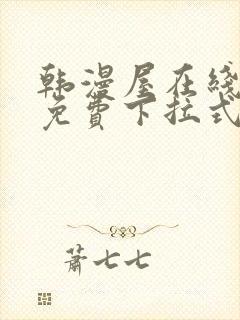 韩漫屋在线
免費下拉式
蕭七七